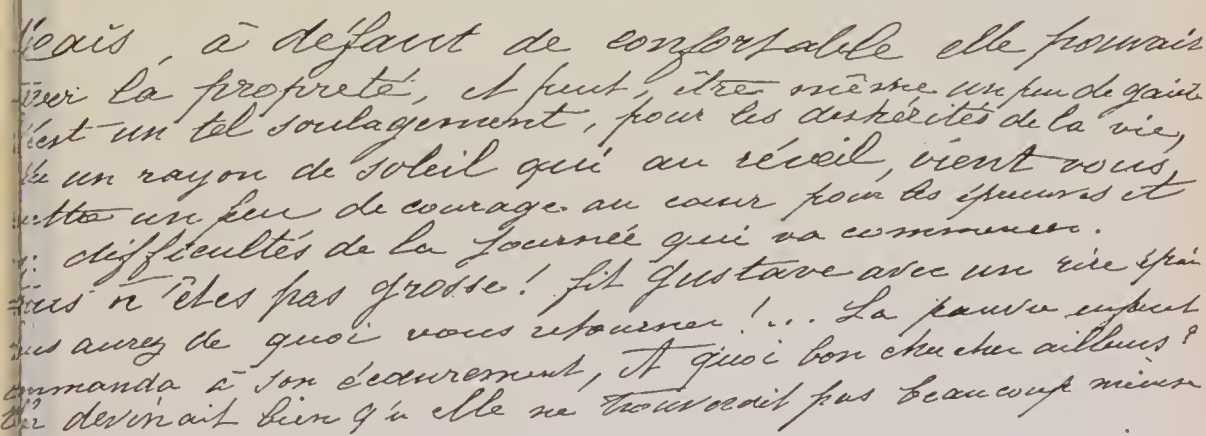 Mais, à défaut de confortable elle pouvait
la propreté, et peut, être même un peu de gaité
c'est un tel soulagement, pour les déshérités de la vie,
un rayon de soleil qui au réveil, vient vous
mettre un peu de courage au cœur pour les épreuves et
difficultés de la journée qui va commencer.
Vous n'êtes pas grosse! fit Gustave avec un rire épais
vous aurez de quoi vous retourner!... La pauvre enfant
commanda à son écœurement, A quoi bon chercher ailleurs?
devinait bien qu'elle ne trouverait pas beaucoup mieux